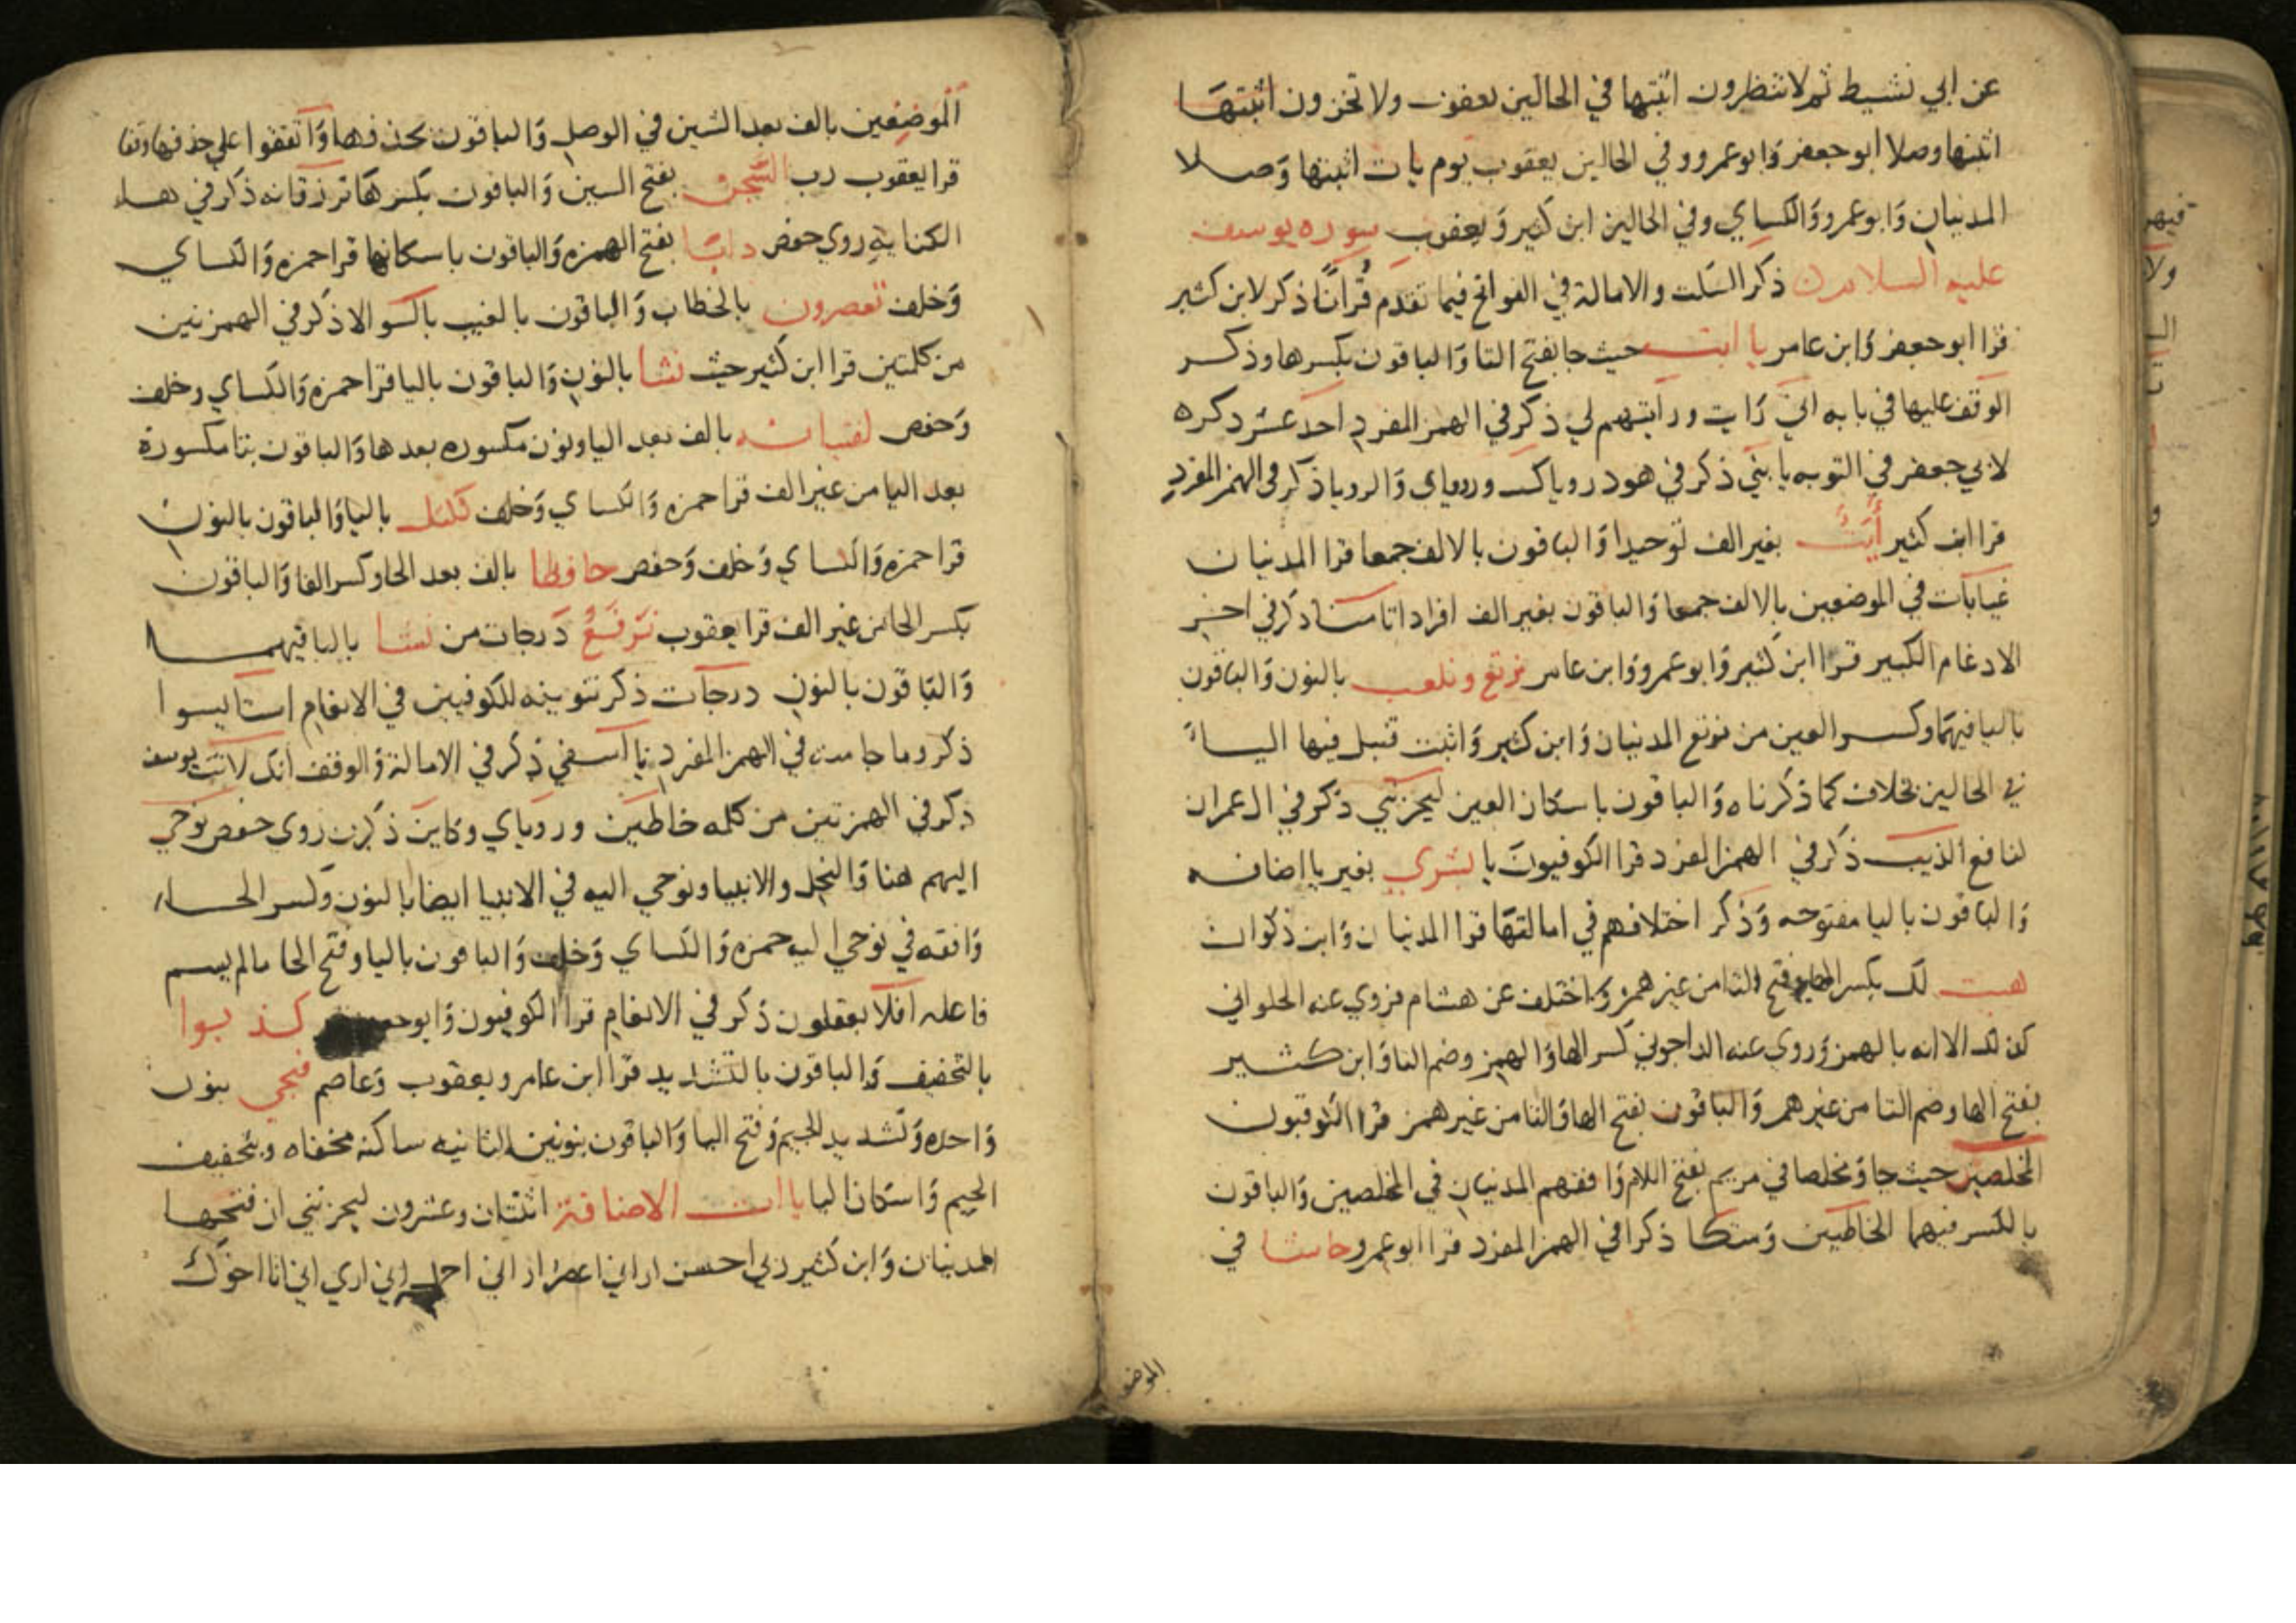 عن ابي نشيط ثم لا تنظرون اثبتها في الحالين يعقوب ولا تخزون اثبتها
اثبتها وصلا ابو جعفر وابو عمرو وفي الحالين يعقوب يوم يات اثبتها وصلا
المدنيان وابو عمرو والكساي وفي الحالين ابن كثير ويعقوب سوره يوسف
عليه السلام ذكر السكت والامالة في الفواتح فيما تقدم قُرانًا ذكر لابن كثير
قرا ابو جعفر وابن عامر يا ابت حيث جا بفتح التا والباقون بكسرها وذكر
الوقف عليها في بابه اني رايت ورايتهم لي ذكر في الهمز المفرد احد عشر ذكره
لابي جعفر في التوبه يا بني ذكر في هود روياك وروياي والرويا ذكر في الهمز المفرد
قرا ابن كثير أيَتٌ بغير الف توحيدا والباقون بالالف جمعا قرا المدنيان
غيابات في الموضعين بالالف جمعا والباقون بغير الف افرادا تامنا ذكر في اخر
الادغام الكبير قرا ابن كثير وابو عمرو وابن عامر نرتع ونلعب بالنون والباقون
باليا فيهما وكسر العين من نرتع المدنيان وابن كثير واثبت قنبل فيها الياء
في الحالين بخلاف كما ذكرناه والباقون باسكان العين ليحزنني ذكر في ال عمران
لنافع الذيب ذكر في الهمز المفرد قرا الكوفيون يا بشري بغير يا اضافه
والباقون باليا مفتوحه وذكر اختلافهم في امالتها قرا المدنيان وابن ذكوان
هيت لك بكسر الها وفتح التا من غير همز واختلف عن هشام فروي عنه الحلواني
كذلك الا انه بالهمز وروي عنه الداجوني كسر الها والهمز وضم التا وابن كثير
بفتح الها وضم التا من غير همز والباقون بفتح الها والتا من غير همز قرا الكوفيون
المخلصين حيث جا ومخلصا في مريم بفتح اللام وافقهم المدنيان في المخلصين والباقون
بالكسر فيهما الخاطيين ومتكا ذكرا في الهمز المفرد قرا ابو عمرو حاشا في
الموض
الموضعين بالف بعد الشين في الوصل والباقون بحذفها واتفقوا علي حذفها وقفا
قرا يعقوب رب السَّجن بفتح السين والباقون بكسرها ترزقانه ذكر في هاء
الكنايه روي حفص دابا بفتح الهمزه والباقون باسكانها قرا حمزه والكساي
وخلف تعصرون بالخطاب والباقون بالغيب بالسو الا ذكر في الهمزتين
من كلمتين قرا ابن كثير حيث نشا بالنون والباقون باليا قرا حمزه والكساي وخلف
وحفص لفتيانه بالف بعد اليا ونون مكسوره بعدها والباقون بتا مكسورة
بعد اليا من غير الف قرا حمزه والكساي وخلف نكتل باليا والباقون بالنون
قرا حمزه والكساي وخلف وحفص حافظا بالف بعد الحا وكسر الفا والباقون
بكسر الحا من غير الف قرا يعقوب نَرفَعُ درجات من نشا باليا فيهما
والباقون بالنون درجات ذكر تنوينه للكوفيين في الانعام استايسوا
ذكر وما جا منه في الهمز المفرد يا اسفي ذكر في الامالة والوقف انك لانت يوسف
ذكر في الهمزتين من كلمه خاطين وروياي وكاين ذكرن روي حفص نوحي
اليهم هنا والنحل والانبيا ونوحي اليه في الانبيا ايضا بالنون وكسر الحاء
وافقه في نوحي اليه حمزه والكساي وخلف والباقون باليا وفتح الحا ما لم يسم
فاعله افلا يعقلون ذكر في الانعام قرا الكوفيون وابو جعفر كذبوا
بالتخفيف والباقون بالتشديد قرا ابن عامر ويعقوب وعاصم فنجي بنون
واحده وتشديد الجيم وفتح اليا والباقون بنونين الثانيه ساكنه مخفاه وبتخفيف
الجيم واسكان اليا ياات الاضافة اثنتان وعشرون ليحزنني ان فتحها
المدنيان وابن كثير ربي احسن اراني اعصر اراني احمل اني اري اني انا اخوك